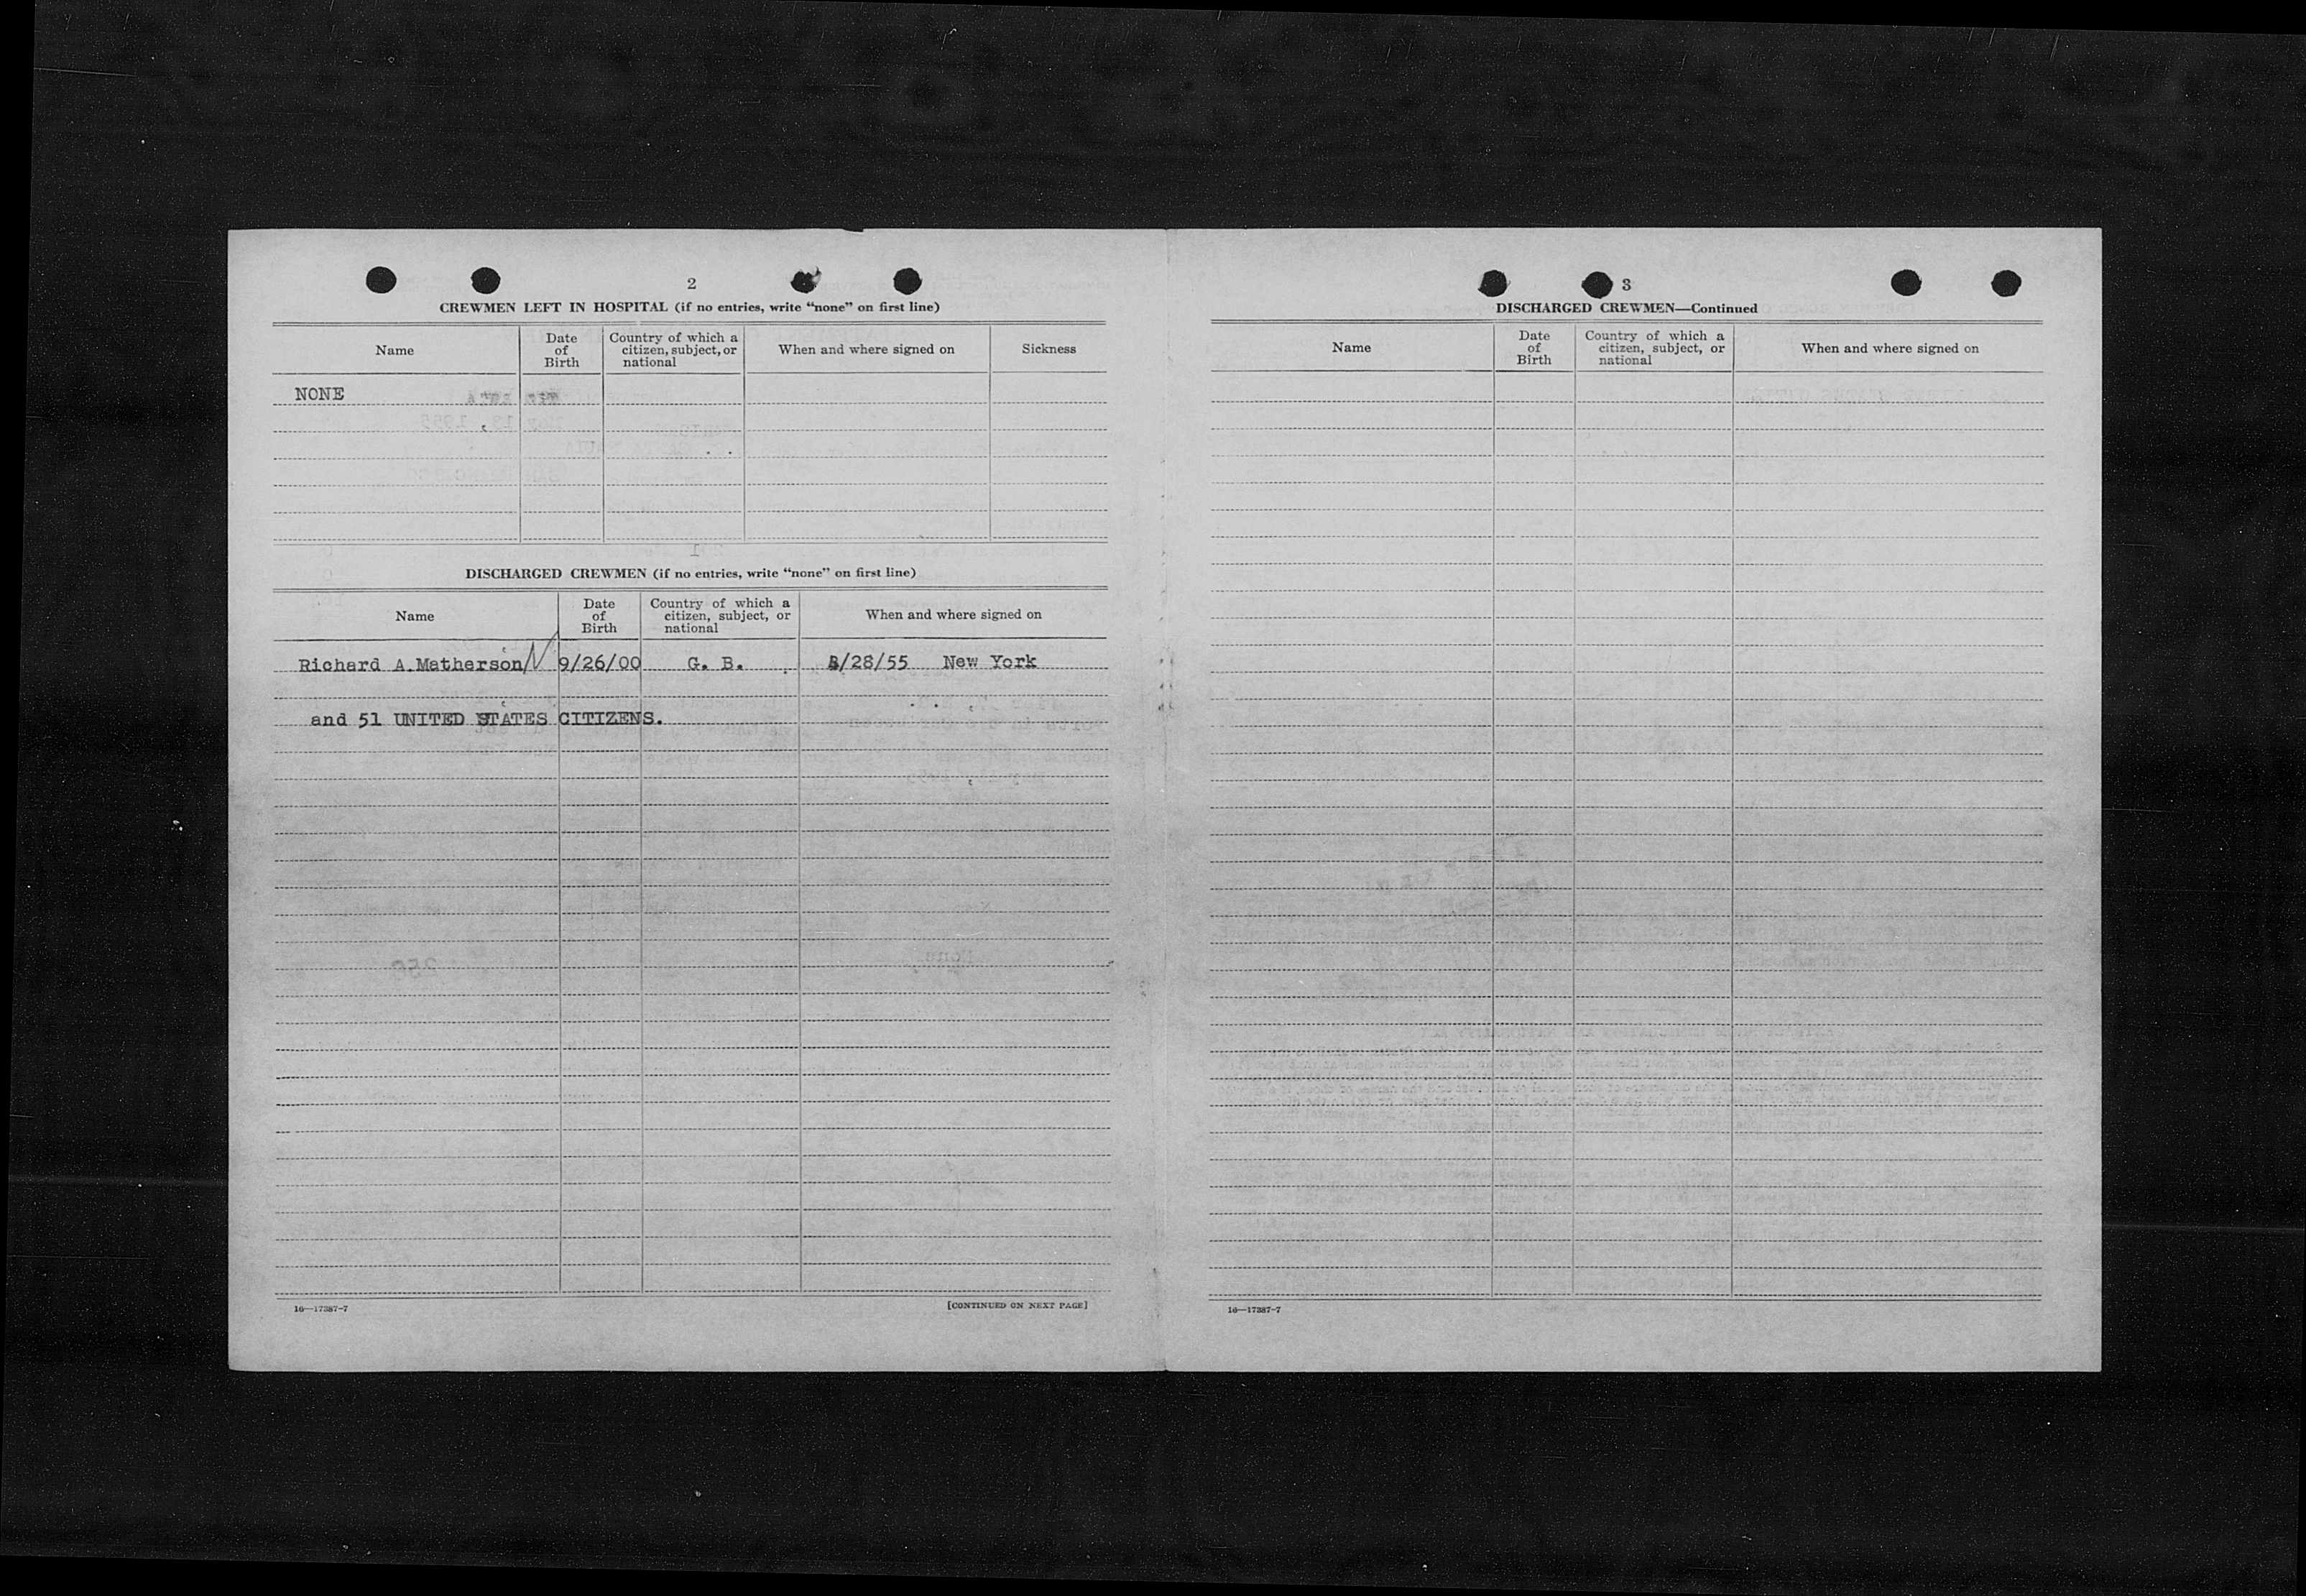 2
CREWMEN LEFT IN HOSPITAL (if no entries, write “none” on first line)
Name
Date of Birth
Country of which a citizen, subject, or national
When and where signed on
Sickness
NONE
DISCHARGED CREWMEN (if no entries, write “none” on first line)
Name
Date of Birth
Country of which a citizen, subject, or national
When and where signed on
Richard A.Matherson 9/26/00 G. B. /28/55 New York
and 51 UNITED STATES CITIZENS.
16—17387-7
[CONTINUED ON NEXT PAGE]
3
DISCHARGED CREWMEN—Continued
Name
Date of Birth
Country of which a citizen, subject, or national
When and where signed on
16—17387-7